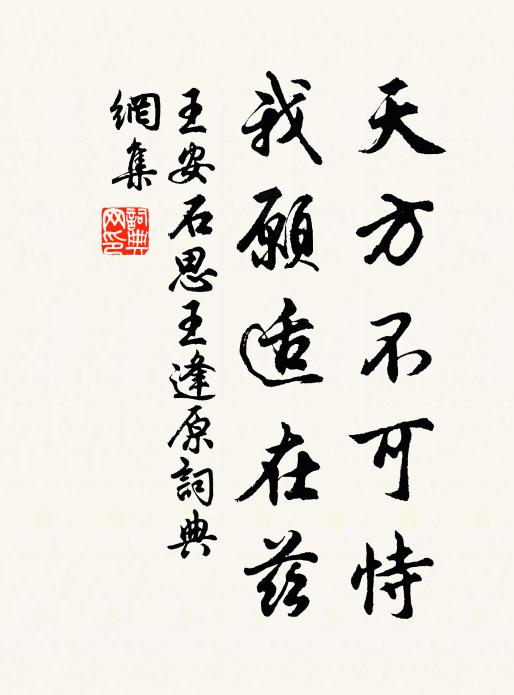 天方不可恃
我願适在茲
王安石思王逢原詞典
網集
詞典网印